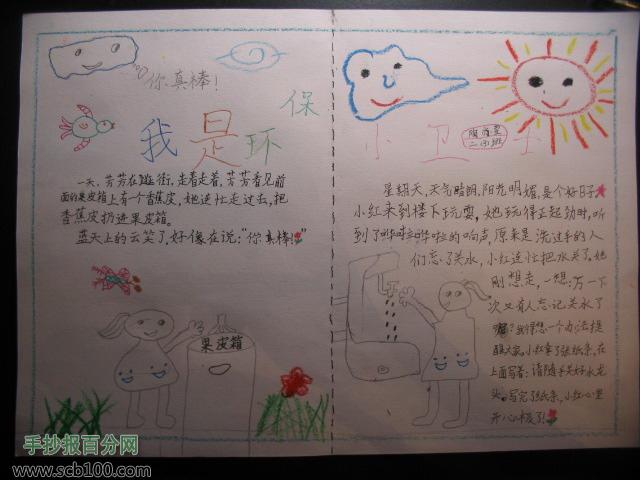 你真棒!
我是环保
小卫士
二(3)班
一天,芳芳在逛街,走着走着,芳芳看见前
面的果皮箱上有个香蕉皮,她连忙走过去,把
香蕉皮扔进果皮箱。
蓝天上的云笑了,好像在说:“你真棒!”
果皮箱
星期天,天气晴朗,阳光明媚,是个好日子
小红来到楼下玩耍,她玩得正起劲时,听
到了哗啦哗啦的响声,原来是洗过手的人
们忘了关水,小红连忙把水关了。她
刚想走,一想:万一下
次又有人忘记关水了
呢?我得想一个办法提
醒大家。小红拿了张纸条,在
上面写着:请随手关好水龙
头。写完了纸条,小红心里
开心极了!
手抄报百分网
www.scb100.com